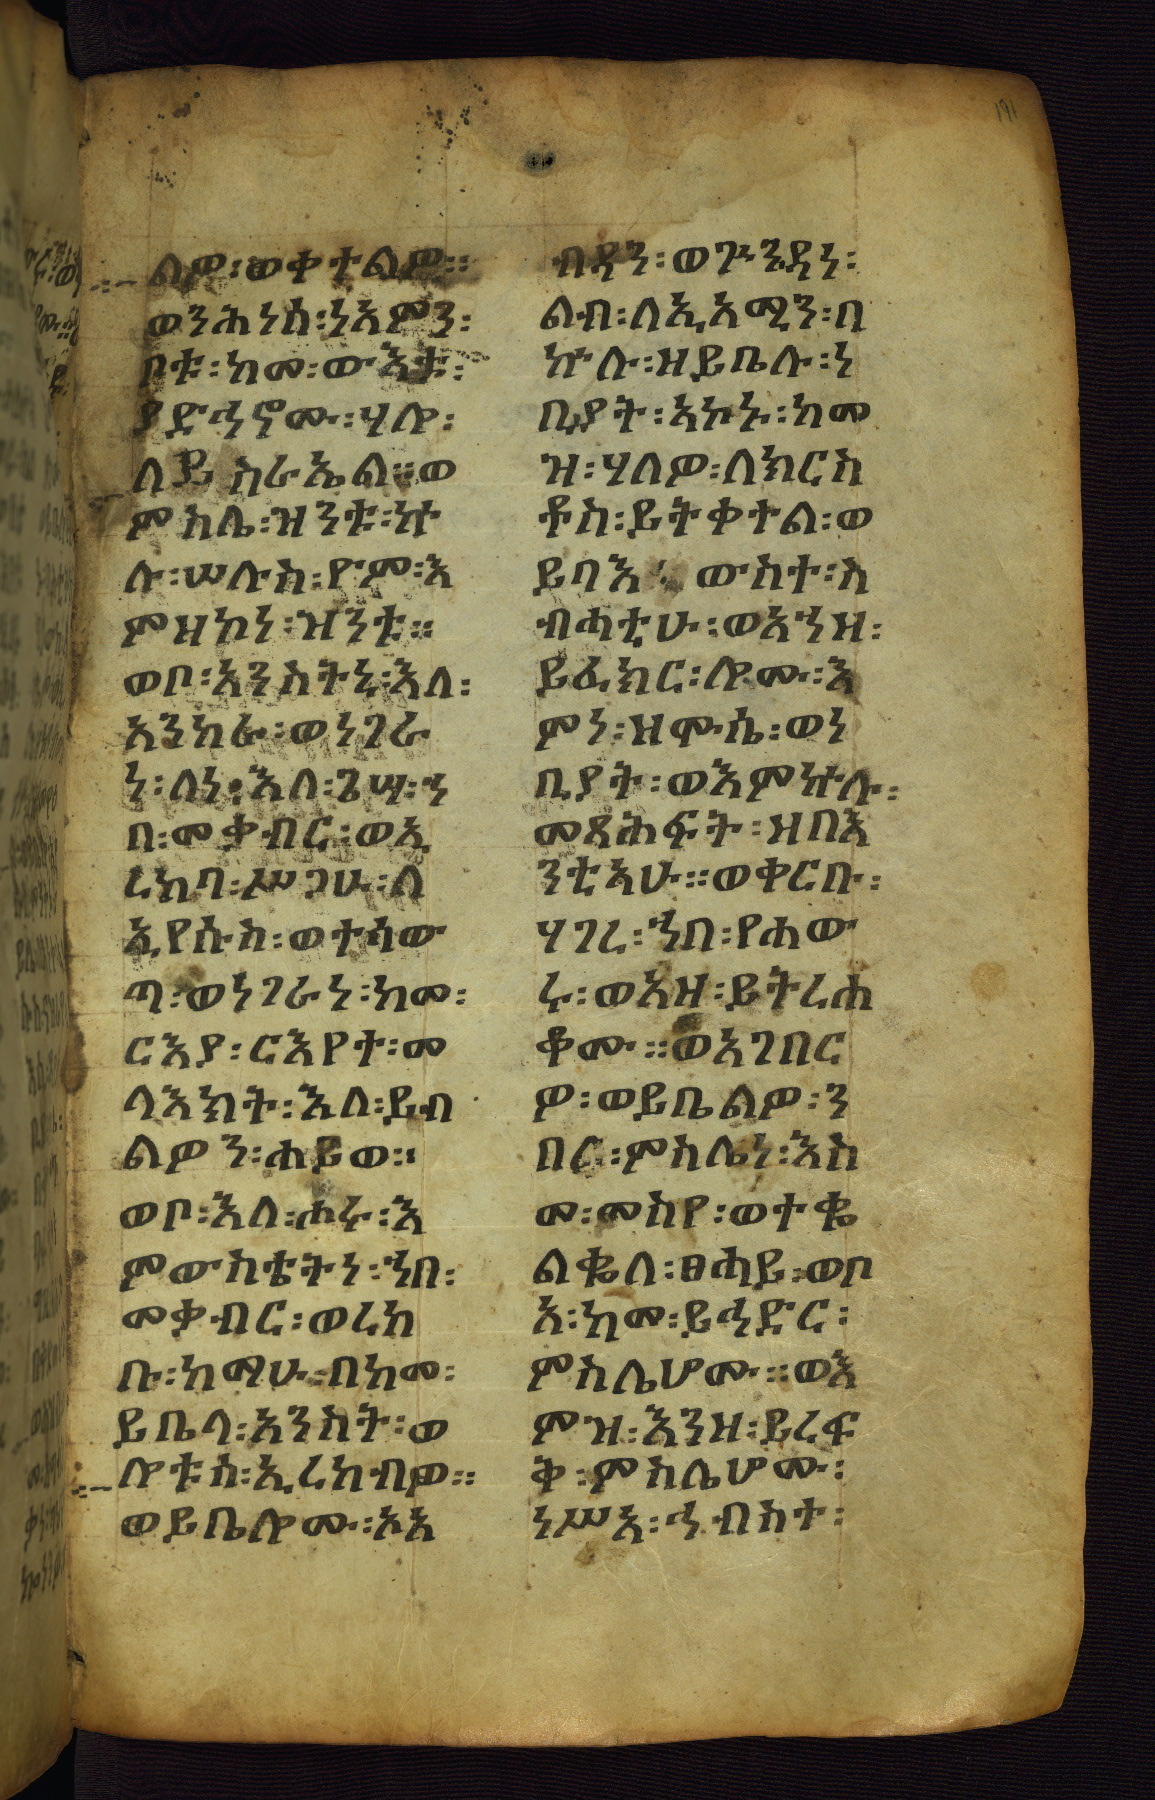 ልዎ፡ወቀተልዎ፡፡
ወንሕነሰ፡ነአምን፡
ቦቱ፡ከመ፡ውእቱ፡
ያድኅኖሙ፡ሃሎ፡
ለይስራኤል፡፡ወ
ምስሌ፡ዝንቱ፡ኵ
ሉ፡ሠሉስ፡ዮም፡እ
ምዘኮነ፡ዝንቲ፡፡
ወቦ፡አንስትኒ፡እለ፡
አንከራ፡ወነገራ
ነ፡ለነ፡እለ፡ጌሣ፡ኀ
በ፡መቃብር፡ወኢ
ረከባ፡ሥጋሁ፡ለ
ኢየሱስ፡ወተሳው
ጣ፡ወነገራነ፡ከመ፡
ርእያ፡ርእየተ፡መ
ላእክት፡እለ፡ይብ
ልዎን፡ሐይወ፡፡
ወቦ፡እለ፡ሖሩ፡እ
ምውስቴትነ፡ኀበ፡
መቃብር፡ወረከ
ቡ፡ከማሁ፡በከመ፡
ይቤላ፡አንስት፡ወ
ሎቱሰ፡ኢረከብዎ፡፡
ወይቤሎሙ፡ኦአ
ብዳን፡ወጕንዳነ፡
ልብ፡ለኢአሚን፡በ
ኵሉ፡ዘይቤሉ፡ነ
ቢያት፡አኮኑ፡ከመ
ዝ፡ሃለዎ፡ለክርስ
ቶስ፡ይትቀተል፡ወ
ይባእ፡ውስተ፡ስ
ብሓቲሁ፡ወአኀዘ፡
ይፈክር፡ሎሙ፡እ
ምነ፡ዘሙሴ፡ወነ
ቢያት፡ወእምኵሉ፡
መጻሕፍት፡ዘበእ
ንቲአሁ፡፡ወቀርቡ፡
ሃገረ፡ኀበ፡የሐው
ሩ፡ወአዘ፡ይትረሐ
ቆሙ፡፡ወአገበር
ዎ፡ወይቤልዎ፡ን
በር፡ምስሌነ፡እስ
መ፡መስየ፡ወተቈ
ልቈለ፡ፀሓይ፡ወቦ
አ፡ከመ፡ይኅድር፡
ምስሌሆሙ፡፡ወእ
ምዝ፡እንዘ፡ይረፍ
ቅ፡ምስሌሆሙ፡
ነሥአ፡ኅብስተ፡